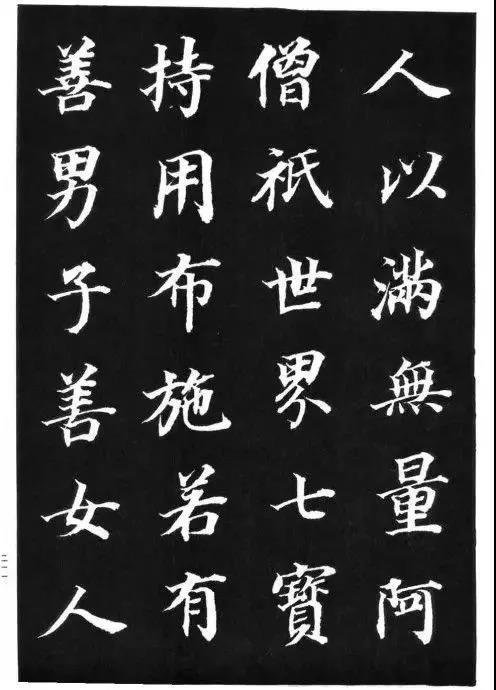 人以滿無量阿
僧祇世界七寶
持用布施若有
善男子善女人
二一一